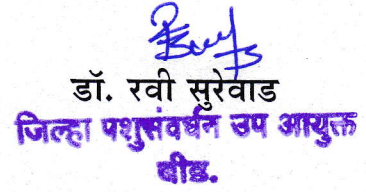 डॉ. रवी सुरेवाड
जिल्हा पशुसंवर्धन उप आयुक्त
बीड.